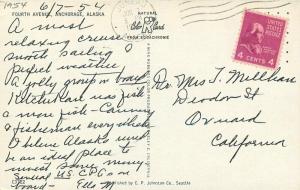 1954
6/7-54
FOURTH AVENUE, ANCHORAGE, ALASKA
A most
relaxing cruise
smooth sailing
Perfect weather
A jolly group on board
Ketchikan was just
a mere fish - Cannery
& fishermen everywhere
I believe Alaska would
be an ideal place to
invest some money
Several US CPGs on
board - Ella M
NATURAL
Color Card
FROM KODACHROME
4 CENTS 4
Mrs T. Millhan
Deodor St
Oxnard
California
Published by C. P. Johnston Co., Seattle